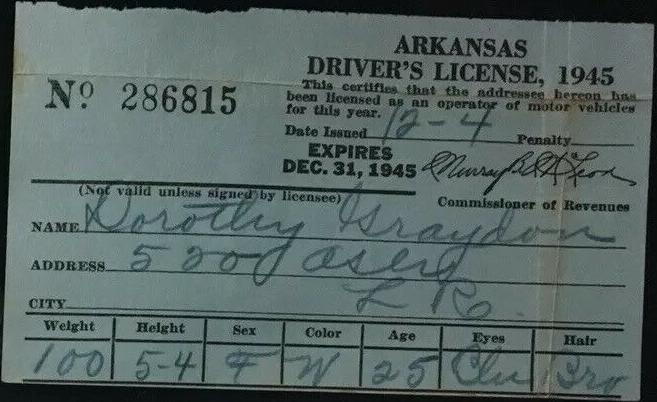 ARKANSAS
DRIVER'S LICENSE, 1945
Nº 286815
This certifies that the addressee hereon has
been licensed as an operator of motor vehicles
for this year.
Date Issued 12-4 Penalty
EXPIRES
DEC. 31, 1945
(Not valid unless signed by licensee)
Commissioner of Revenues
NAME Dorothy Graydon
ADDRESS 5200
CITY L R.
Weight Height Sex Color Age Eyes Hair
100 5-4 F W 25 Bro